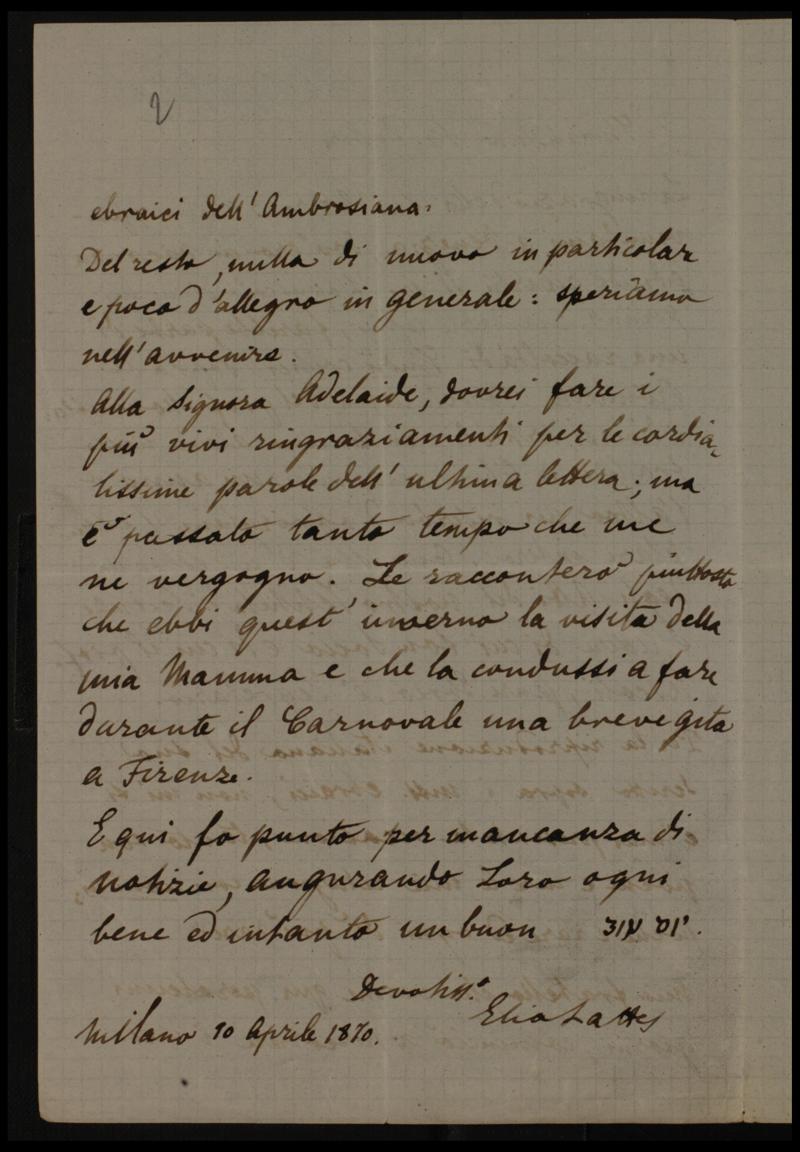 2
ebraici dell' Ambrosiana.
Del resto, nulla di nuovo in particolare
e poco d'allegro in generale: speriamo
nell'avvenire.
Alla Signora Adelaide, dovrei fare i
più vivi ringraziamenti per le cordia-
lissime parole dell' ultima lettera; ma
è passato tanto tempo che me
ne vergogno. Le racconterò piuttosto
che ebbi quest' inverno la visita della
mia Mamma e che la condussi a fare
durante il Carnovale una breve gita
a Firenze.
E qui fo punto per mancanza di
notizie, augurando Loro ogni
bene ed intanto un buon יום טוב.
Devotiss.º
Elia Lattes
Milano 10 Aprile 1870.